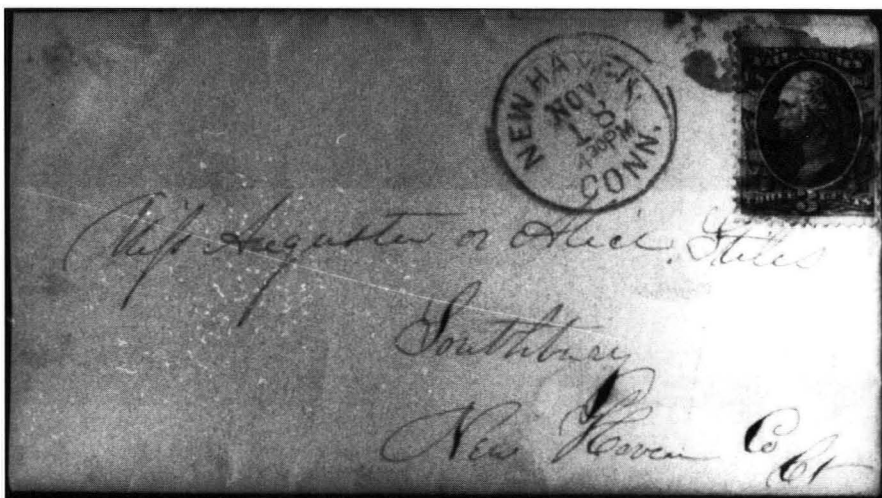 NEW HAVEN,
NOV
10
430PM
CONN.
Miss Augusta or Alice Stiles
Southbury
New Haven Co
Ct